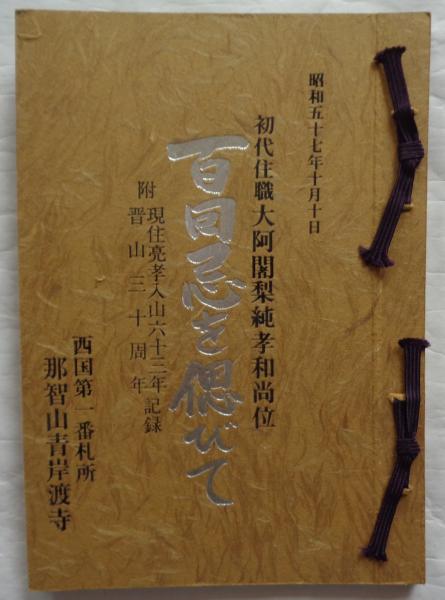 昭和五十七年十月十日
初代住職大阿闍梨純孝和尚位
百回忌を偲びて
附 現住亮孝入山六十三年記録
晋山三十周年
西国第一番札所
那智山青岸渡寺